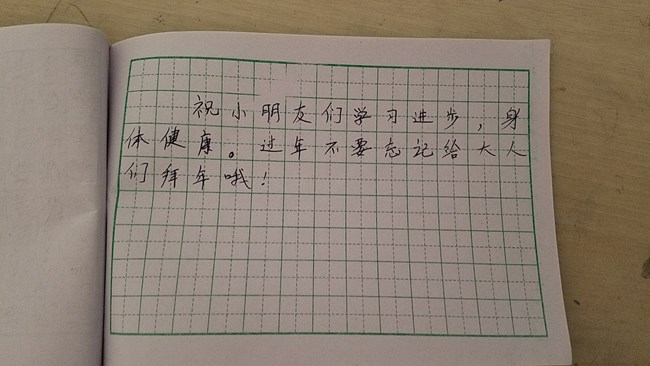 祝小朋友们学习进步，身
体健康。过年不要忘记给大人
们拜年哦！